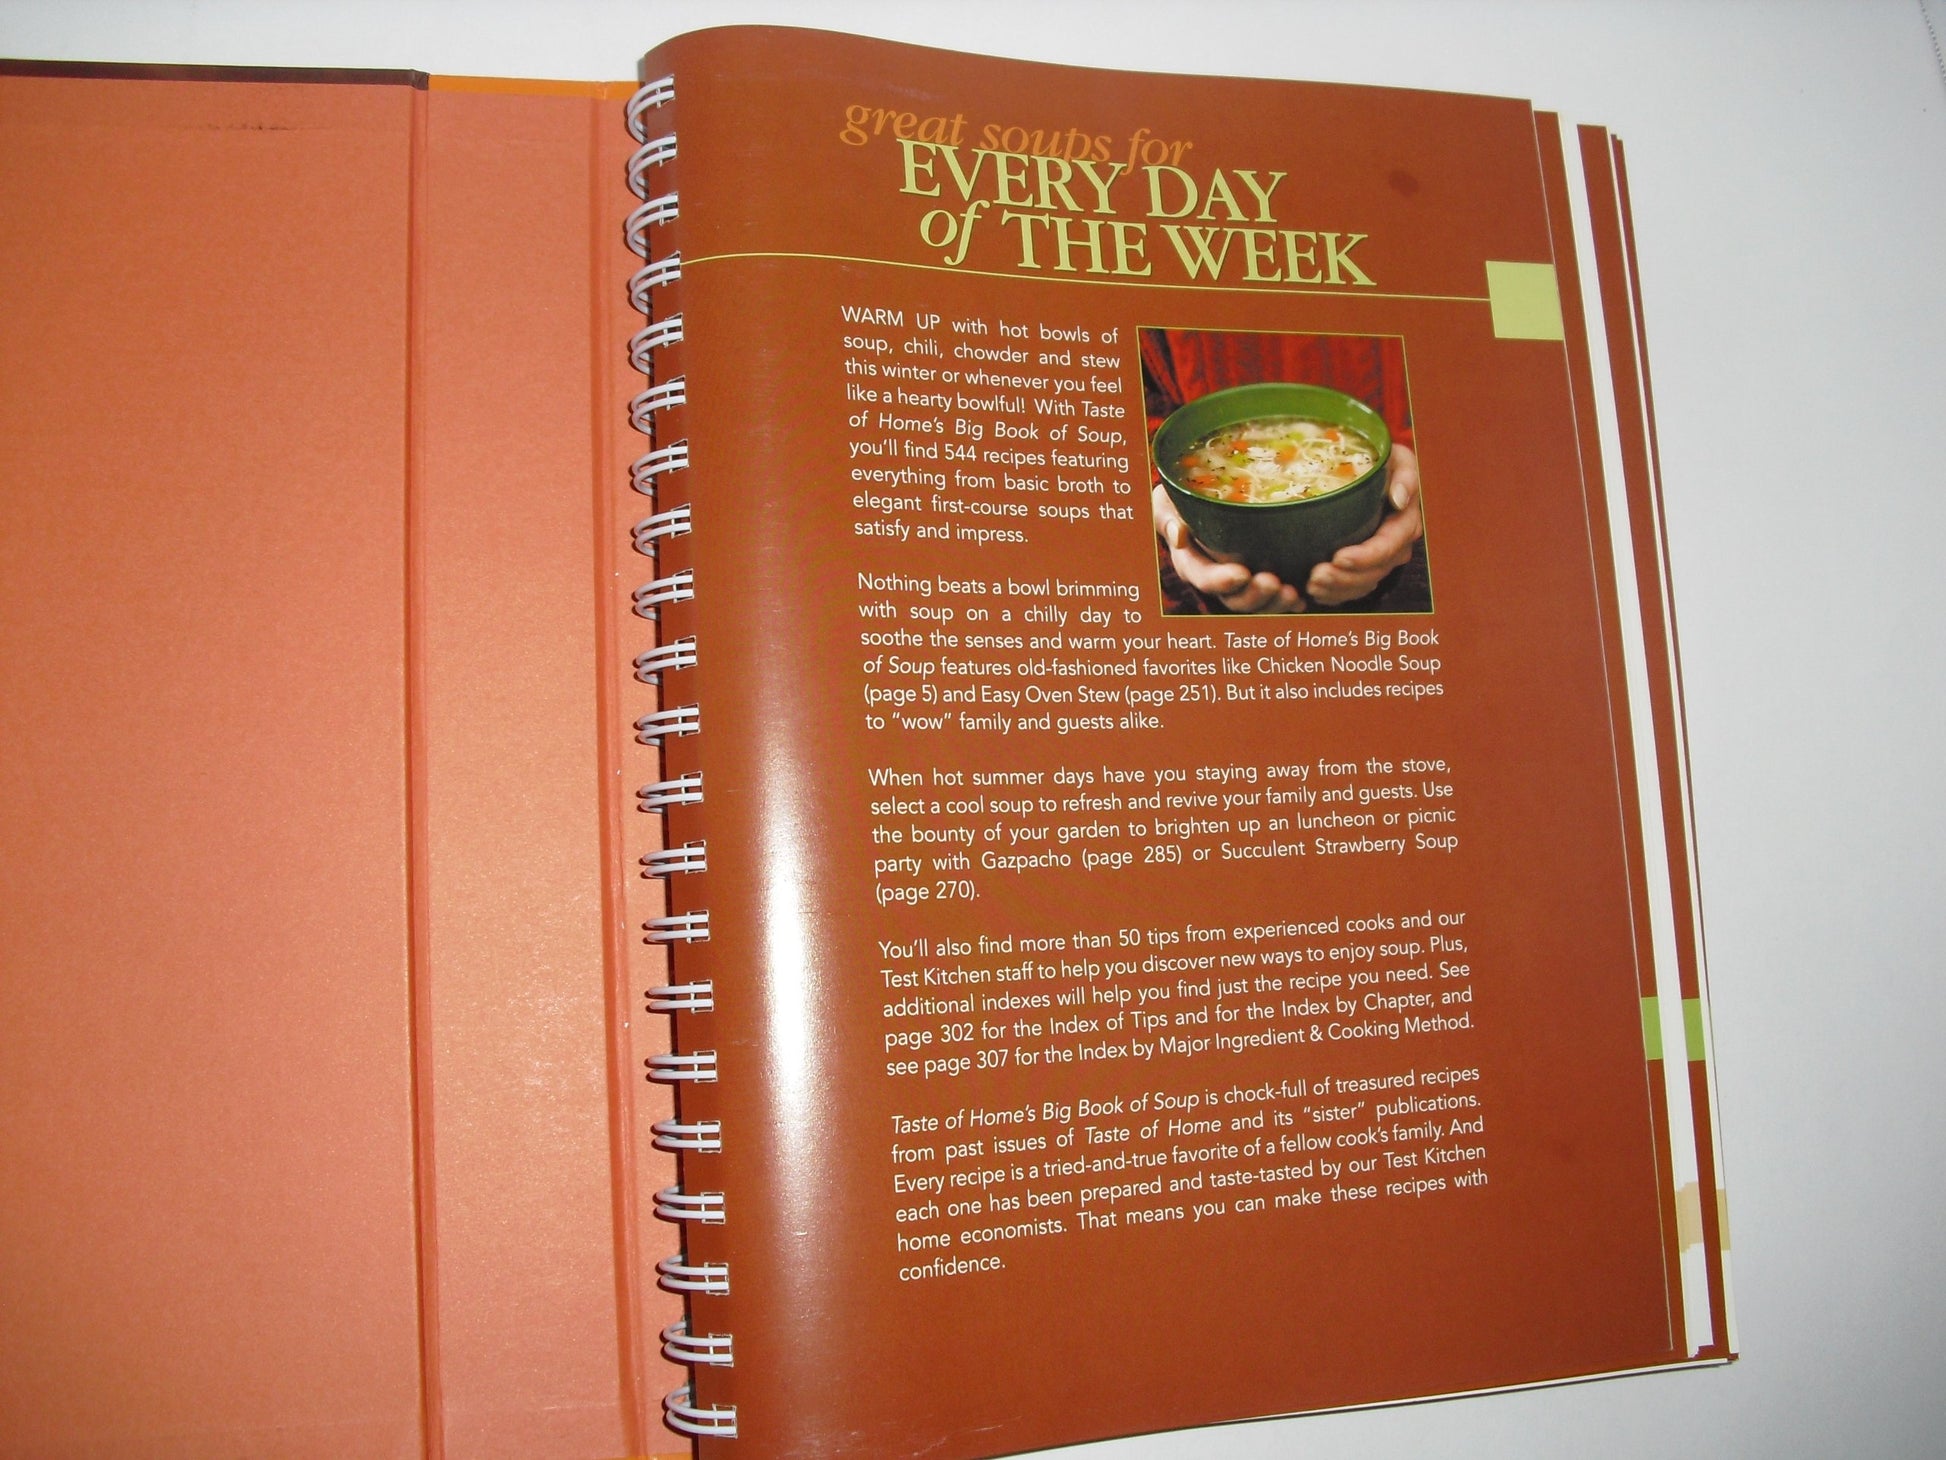 great soups for
EVERY DAY
of THE WEEK
WARM UP with hot bowls of
soup, chili, chowder and stew
this winter or whenever you feel
like a hearty bowlful! With Taste
of Home's Big Book of Soup,
you'll find 544 recipes featuring
everything from basic broth to
elegant first-course soups that
satisfy and impress.
Nothing beats a bowl brimming
with soup on a chilly day to
soothe the senses and warm your heart. Taste of Home's Big Book
of Soup features old-fashioned favorites like Chicken Noodle Soup
(page 5) and Easy Oven Stew (page 251). But it also includes recipes
to "wow" family and guests alike.
When hot summer days have you staying away from the stove,
select a cool soup to refresh and revive your family and guests. Use
the bounty of your garden to brighten up an luncheon or picnic
party with Gazpacho (page 285) or Succulent Strawberry Soup
(page 270).
You'll also find more than 50 tips from experienced cooks and our
Test Kitchen staff to help you discover new ways to enjoy soup. Plus,
additional indexes will help you find just the recipe you need. See
page 302 for the Index of Tips and for the Index by Chapter, and
see page 307 for the Index by Major Ingredient & Cooking Method.
Taste of Home's Big Book of Soup is chock-full of treasured recipes
from past issues of Taste of Home and its "sister" publications.
Every recipe is a tried-and-true favorite of a fellow cook's family. And
each one has been prepared and taste-tasted by our Test Kitchen
home economists. That means you can make these recipes with
confidence.